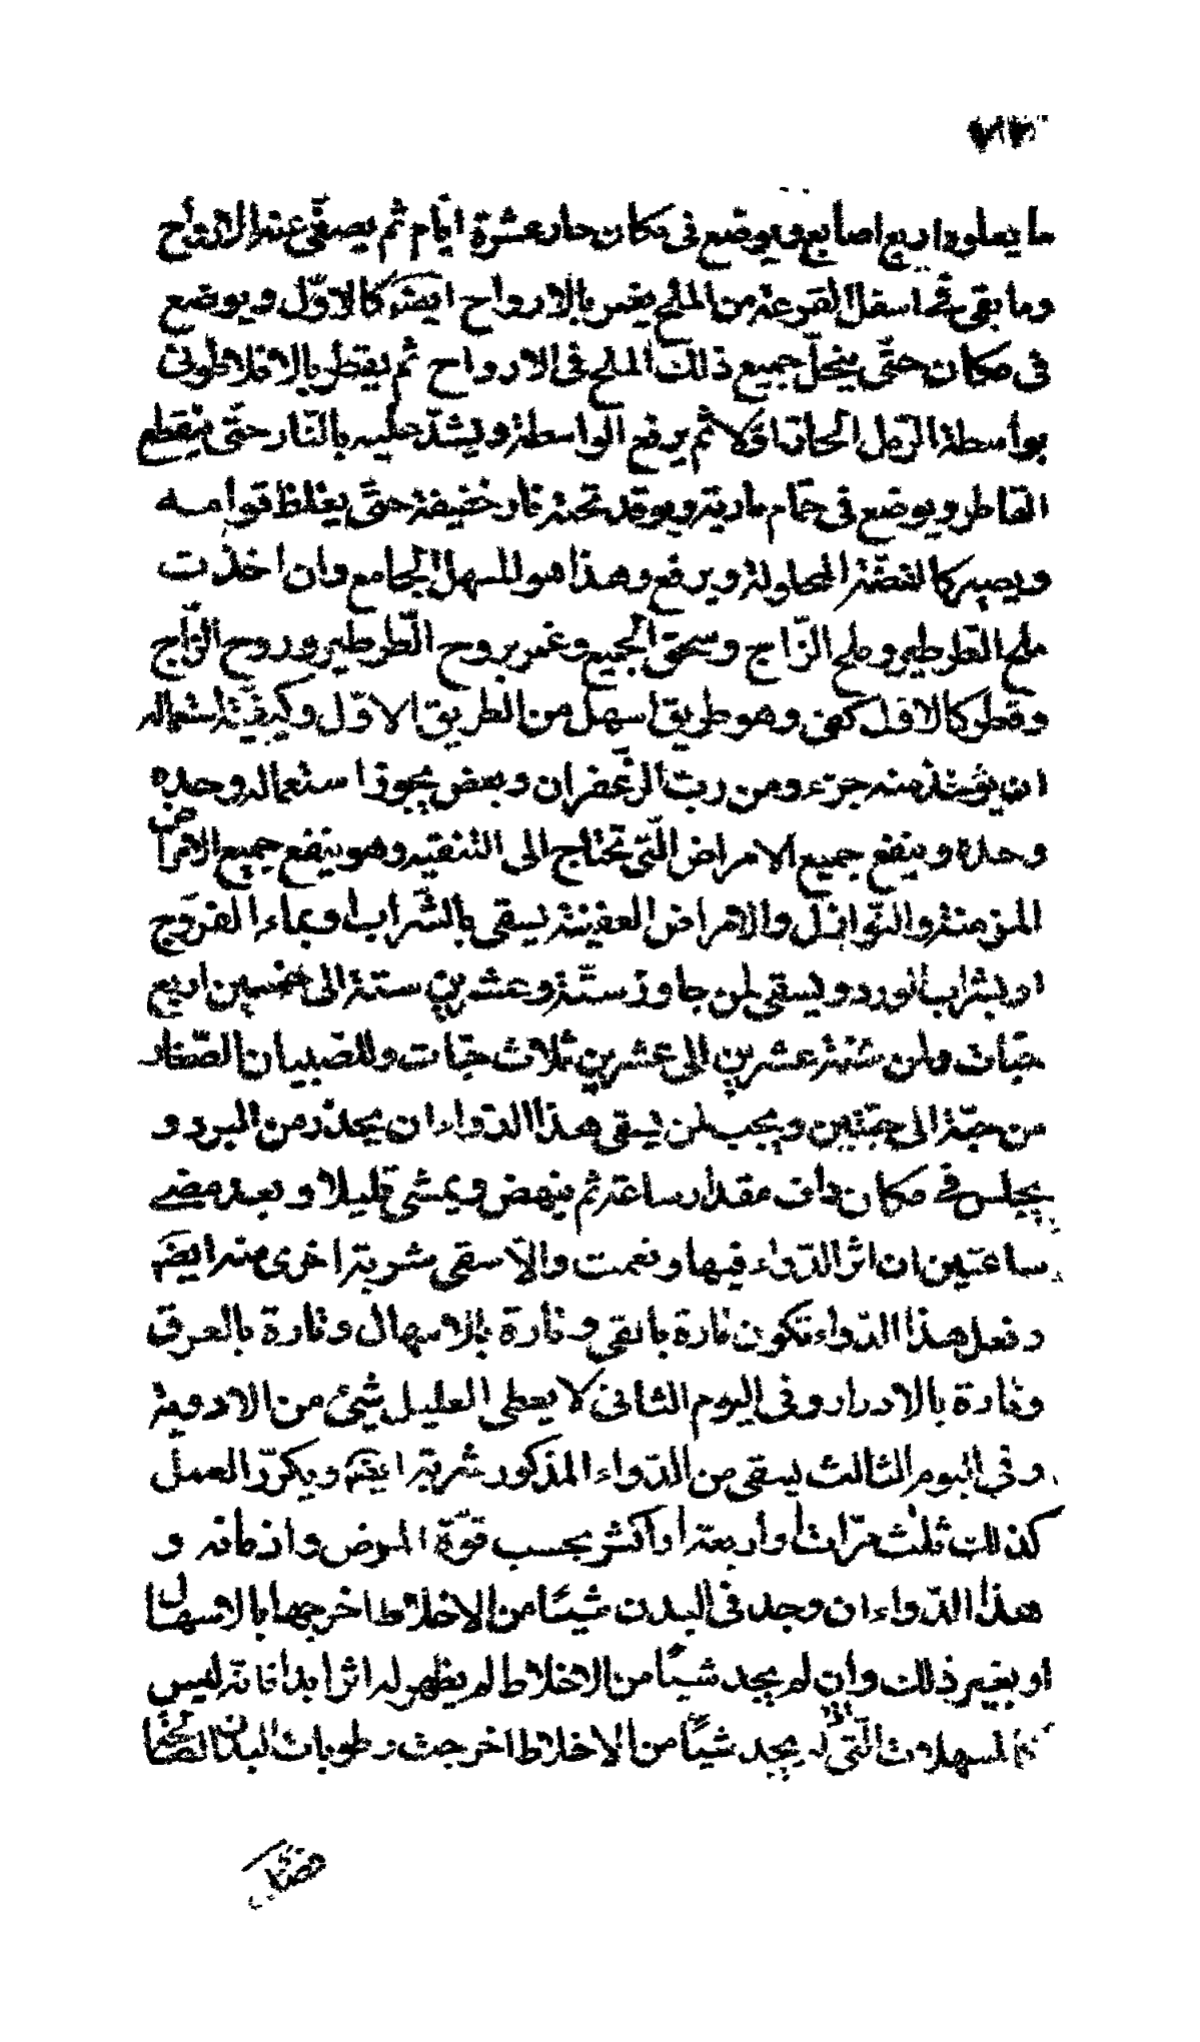 ما يعلوه اربع اصابع ويوضع فى مكان حار عشرة ايّام ثم يصفّى عنه الارواح
وما بقى فى اسفل القرعة من الملح يغمر بالارواح ايضا كالاوّل ويوضع
فى مكان حتّى ينحلّ جميع ذلك الملح فى الارواح ثم يقطر بالافلاطونى
بواسطة الرّمل الحار اوّلا ثم يرفع الواسطة ويشدّ عليه بالنّار حتّى ينقطع
القاطر ويوضع فى حمّام مارية ويوقد تحته نار خفيفة حتّى يغلظ قوامه
ويصير كالفضّة المحلولة ويرفع وهذا هو المسهل الجامع وان اخذت
ملح الطرطير وملح الزّاج وسحق الجميع وغمر بروح الطّرطير وروح الزّاج
وقطر كالاول كفى وهو طريق اسهل من الطريق الاوّل وكيفيّة استعماله
ان يؤخذ منه جزء ومن ربّ الزّعفران وبعض يجوز استعماله وحده
وحده وينفع جميع الامراض الّتى تحتاج الى التنقيه وهو ينفع جميع الامراض
المزمنة والنّوازل والامراض العفينة يسقى بالشّراب او بماء الفرّوج
او بشراب الورد ويسقى لمن جاوز ستّة وعشرين سنة الى خمسين اربع
حبّات ولمن سنّه عشرين الى عشرين ثلاث حبّات وللصّبيان الصّغار
من حبّة الى حبّتين ويجب لمن يسقى هذا الدّواء ان يحذر من البرد و
يجلس فى مكان دافى مقدار ساعة ثم ينهض ويمشى قليلا وبعد مضى
ساعتين ان اثر الدّواء فيها ونعمت والّا سقى شربة اخرى منه ايضا
وفعل هذا الدّواء تكون تارة بالقى وتارة بالاسهال وتارة بالعرق
وتارة بالادرار وفى اليوم الثانى لا يعطى العليل شيئ من الادوية
وفى اليوم الثالث يسقى من الدّواء المذكور شربة ايضا ويكرّر العمل
كذلك ثلث مرّات او أربعة او أكثر بحسب قوّة المرض وازمانه و
هذا الدّواء ان وجد فى البدن شيئا من الاخلاط اخرجها بالاسهال
او بغير ذلك وان لم يجد شيئا من الاخلاط لم يظهر له اثرا بدا فانه ليس
كالمسهلات الّتى اذا لم يجد شيئا من الاخلاط اخرجت رطوبات البدن الصّالحة